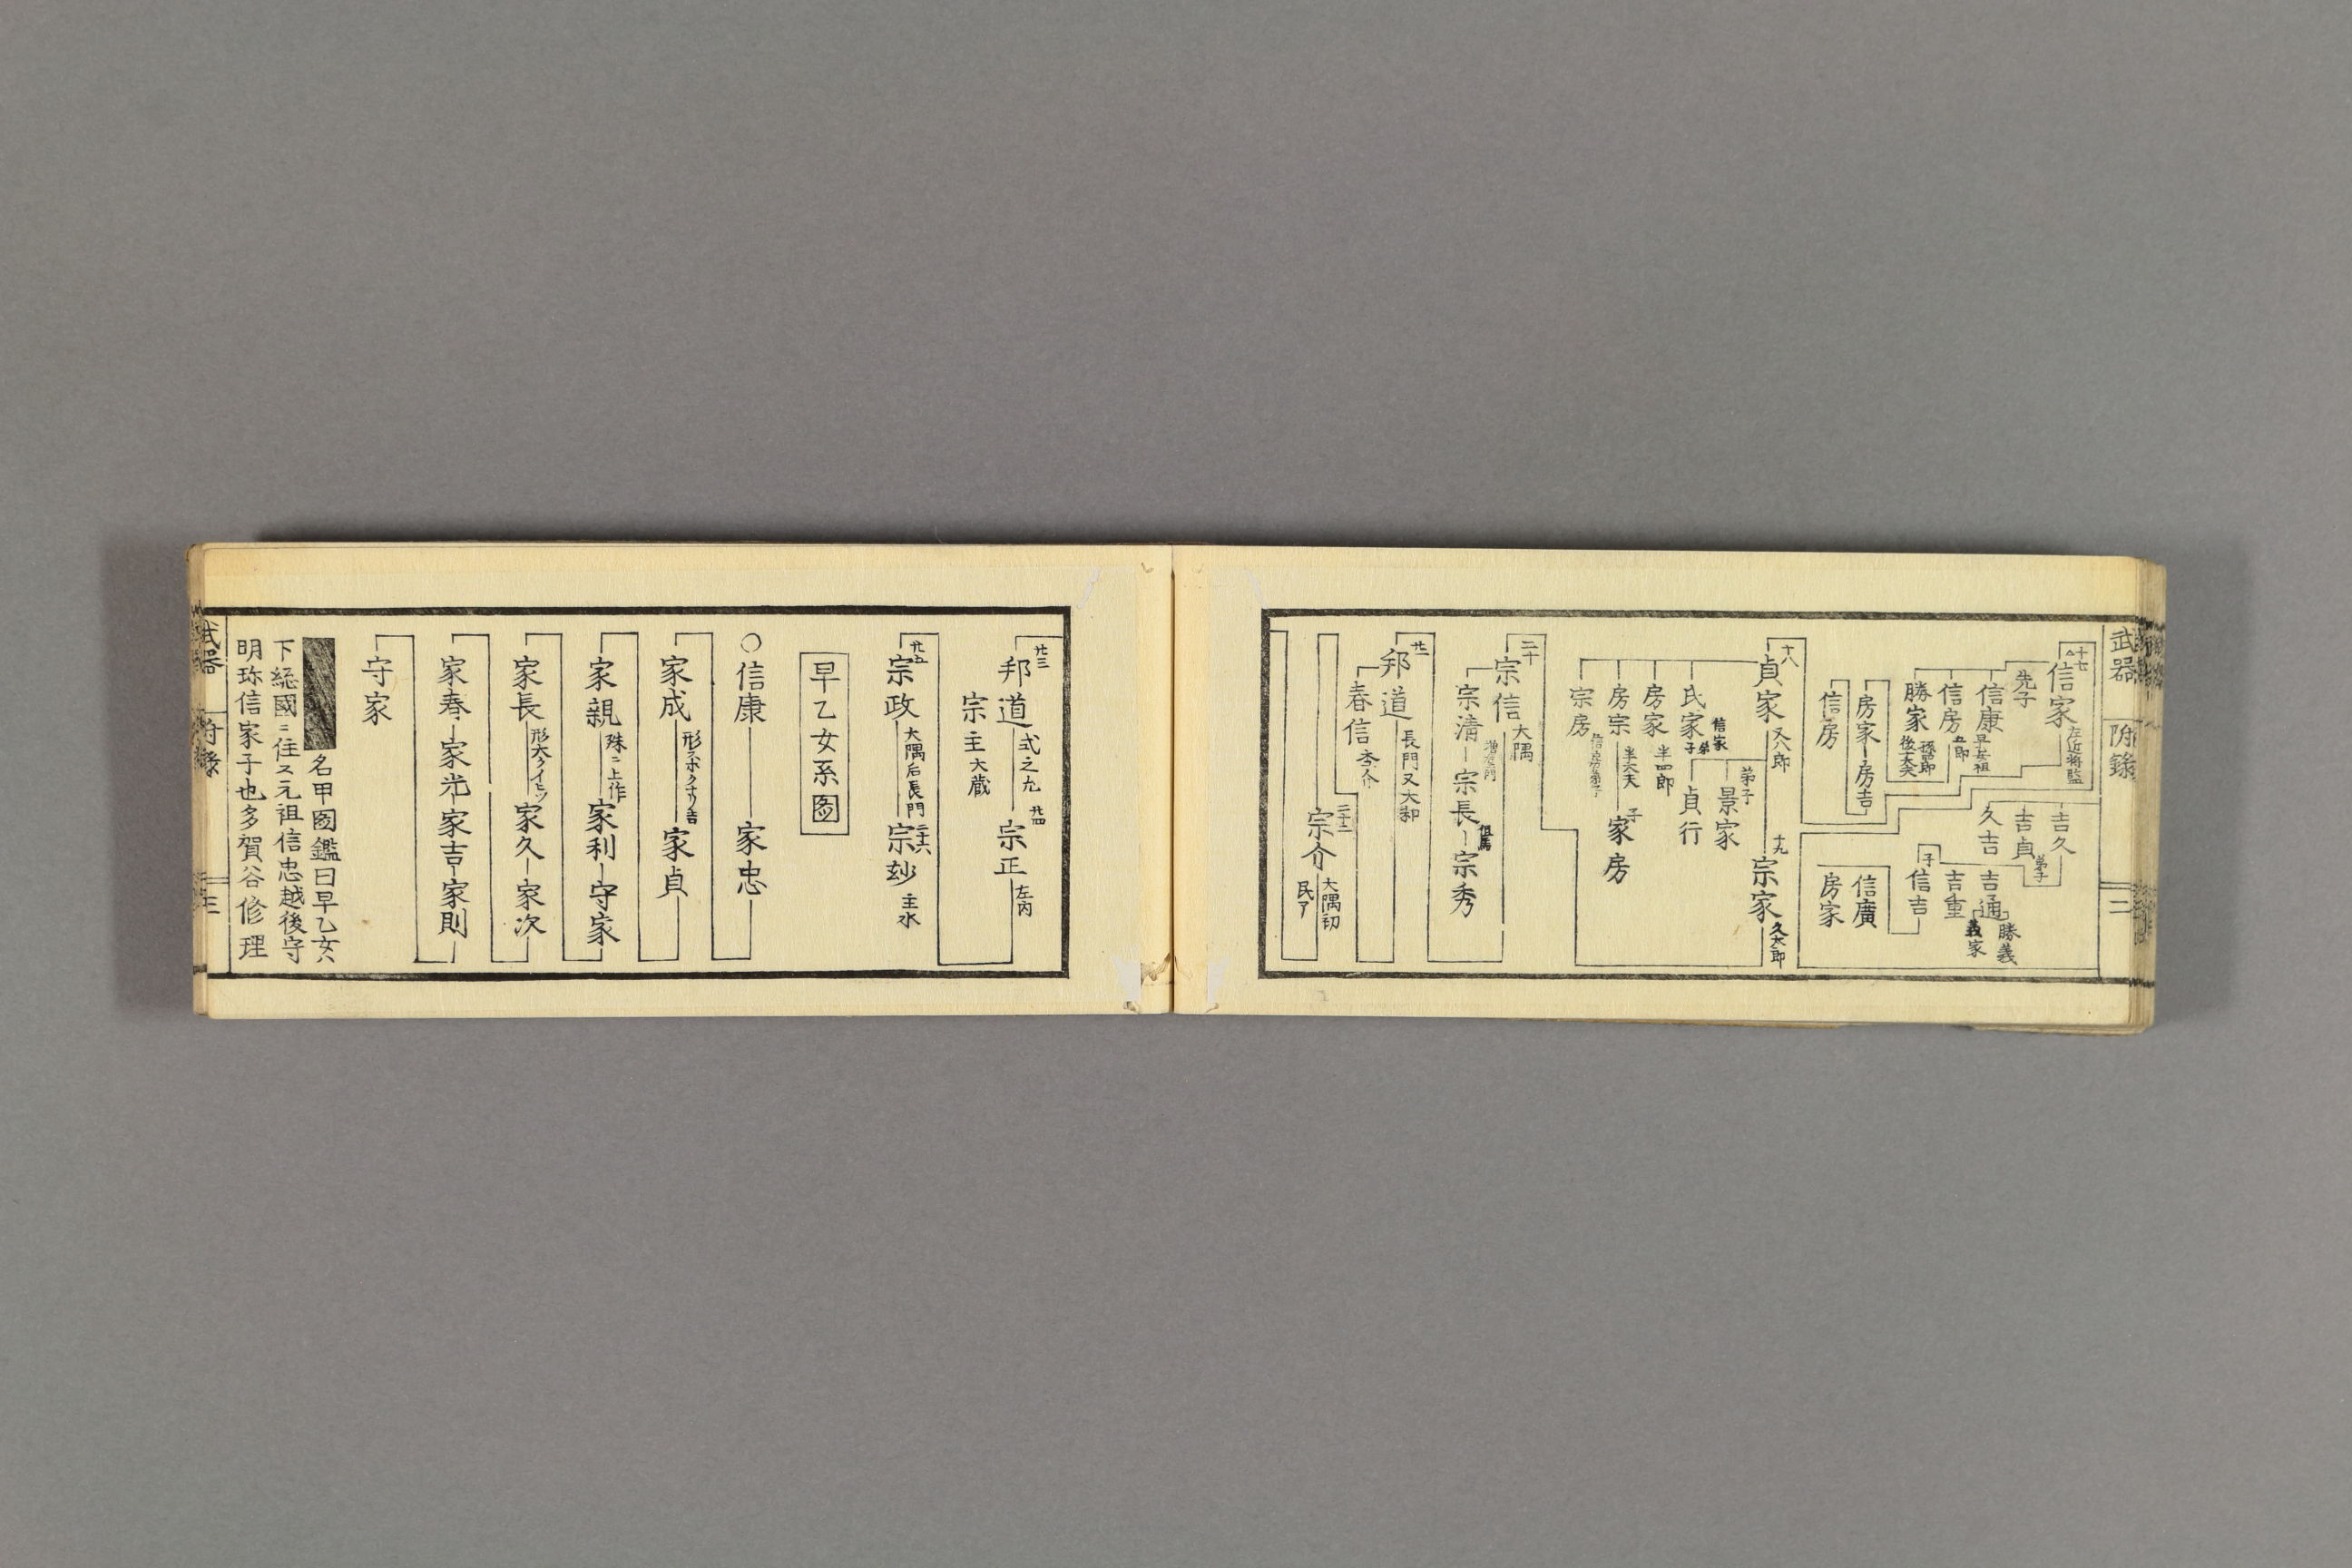 武器
附錄
二
十七
信家
左近将監
先子
信康
早乙女祖
信房
五郎
勝家
孫四郎
吉久
吉貞
弟子
久吉
吉通
勝義
義家
吉重
子
信吉
房家
房吉
信房
信廣
房家
十八
貞家
又八郎
十九
宗家
久太郎
弟子
景家
氏家
信家
貞行
房家
半四郎
房宗
子
家房
宗房
二十
宗信
大隅
宗清
宗長
但馬
宗秀
廿一
邦道
長門又大和
春信
二十二
宗介
大隅
廿三
邦道
式之九
廿四
宗正
左内
宗主
大蔵
廿五
宗政
大隅后長門
二十六
宗玅
主水
早乙女系圖
○信康
家忠
家成
家貞
家親
殊ニ上作
家利
守家
家長
家久
家次
家春
家光
家吉
家則
守家
名甲圖鑑曰早乙女ハ
下総國ニ住ス元祖信忠越後守
明珍信家子也多賀谷修理
武器
附錄
三